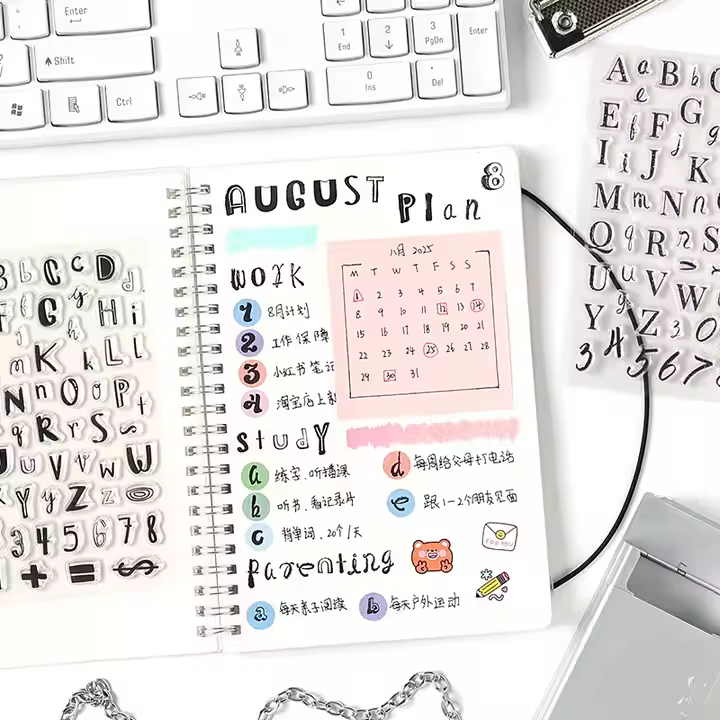 Enter
Shift
Ctrl
1
End
2
3
PgDn
Enter
0
Ins
.
Del
AUGUST Plan
8
WORK
1 8月计划
2 工作保障
3 小红书笔记
4 淘宝店上新
八月 2025
M T W T F S S
1 2 3 4 5 6 7
8 9 10 11 12 13 14
15 16 17 18 19 20 21
22 23 24 25 26 27 28
29 30 31
StudY
a 练字.听播课
b 听书.看记录片
c 背单词.20个/天
d 每周给父母打电话
e 跟1-2个朋友见面
parenting
FOR YOU
a 每天亲子阅读
b 每天户外运动
b C c D d
G g H i
h
K k L l
N n O o P
q R r S s t
U u V v W w
Y y Z z
3 4 5 6 7 8
+ = $
A a B b C
E e F f G
I i J j K
M m N n O
Q q R r S s
U u V W
Y g Z 3 0
3 4 5 6 7 8